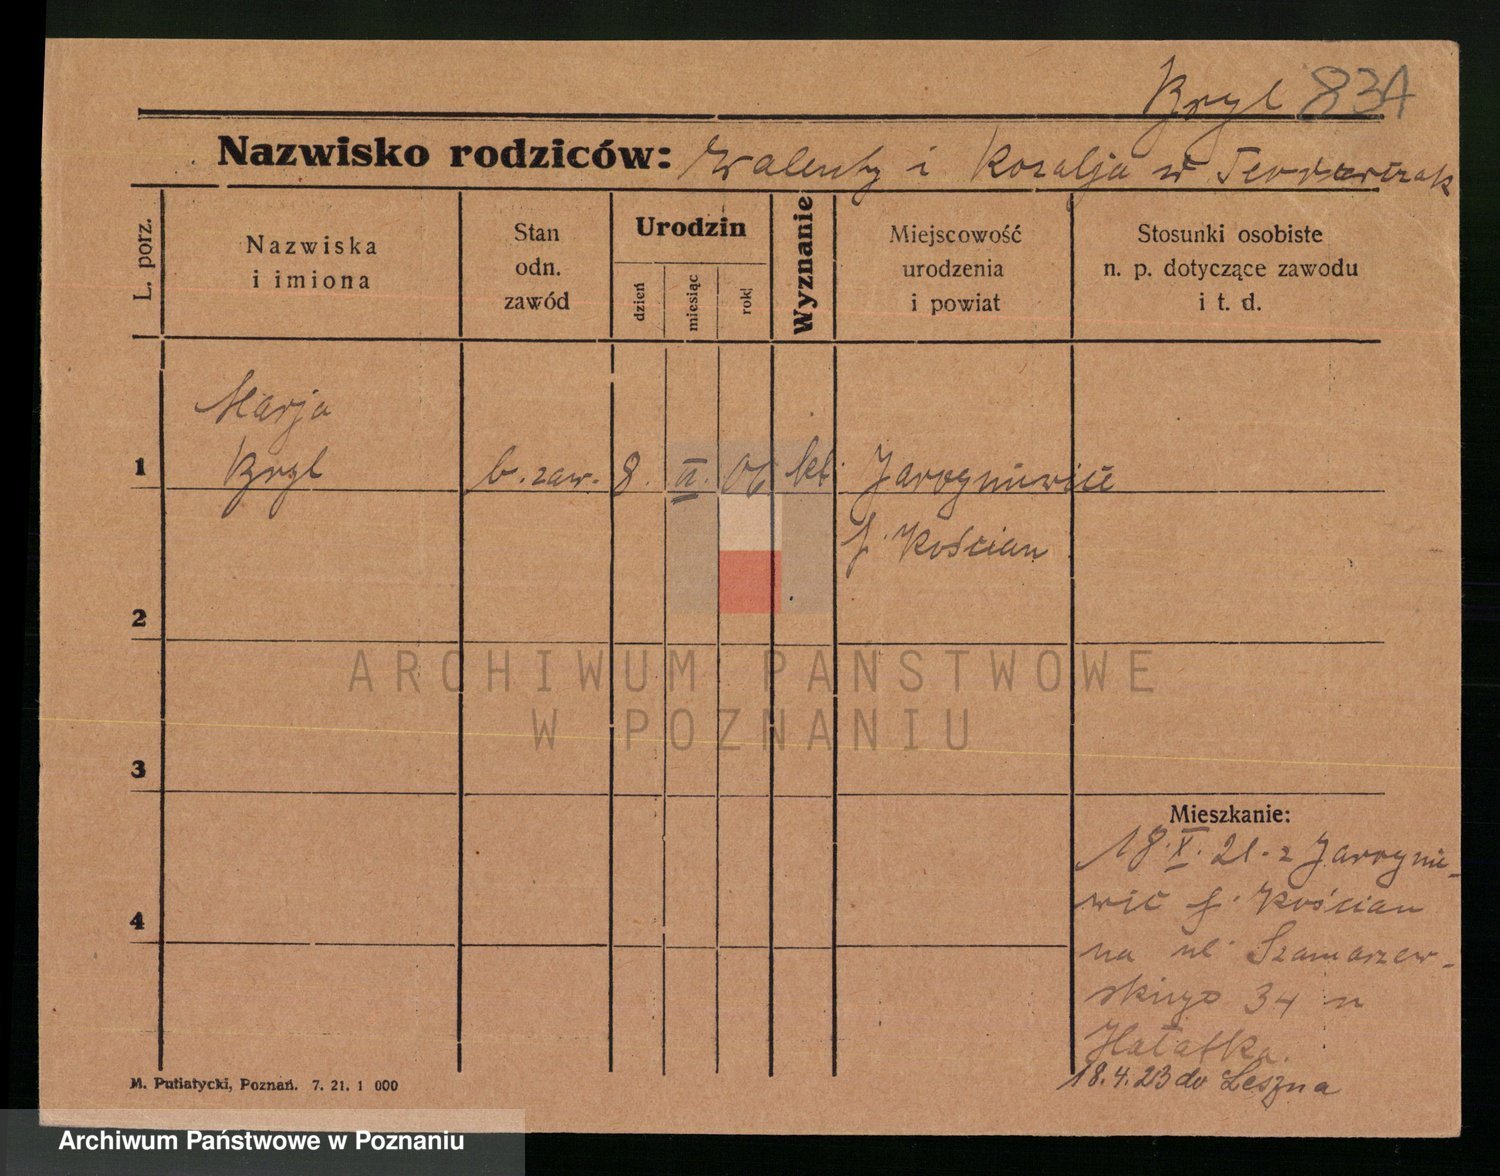 Bryl 83A
Nazwisko rodziców: Walenty i Rozalja
L. porz.
Nazwiska
i imiona
Stan
odn.
zawód
Urodzin
dzień
miesiąc
rok
Wyznanie
Miejscowość
urodzenia
i powiat
Stosunki osobiste
n. p. dotyczące zawodu
i t. d.
Marja
1 Bryl b. zaw. 8. II. 06 kt. Jarogniewice
p. Kościan
2
ARCHIWUM PAŃSTWOWE
W POZNANIU
3
Mieszkanie:
18. X. 21. z Jarognie-
wic p. Kościan
4
na ul. Szamarzew-
skiego 34 u
Hałatka.
18.4.23 do Leszna
M. Putiatycki, Poznań. 7. 21. 1 000
Archiwum Państwowe w Poznaniu